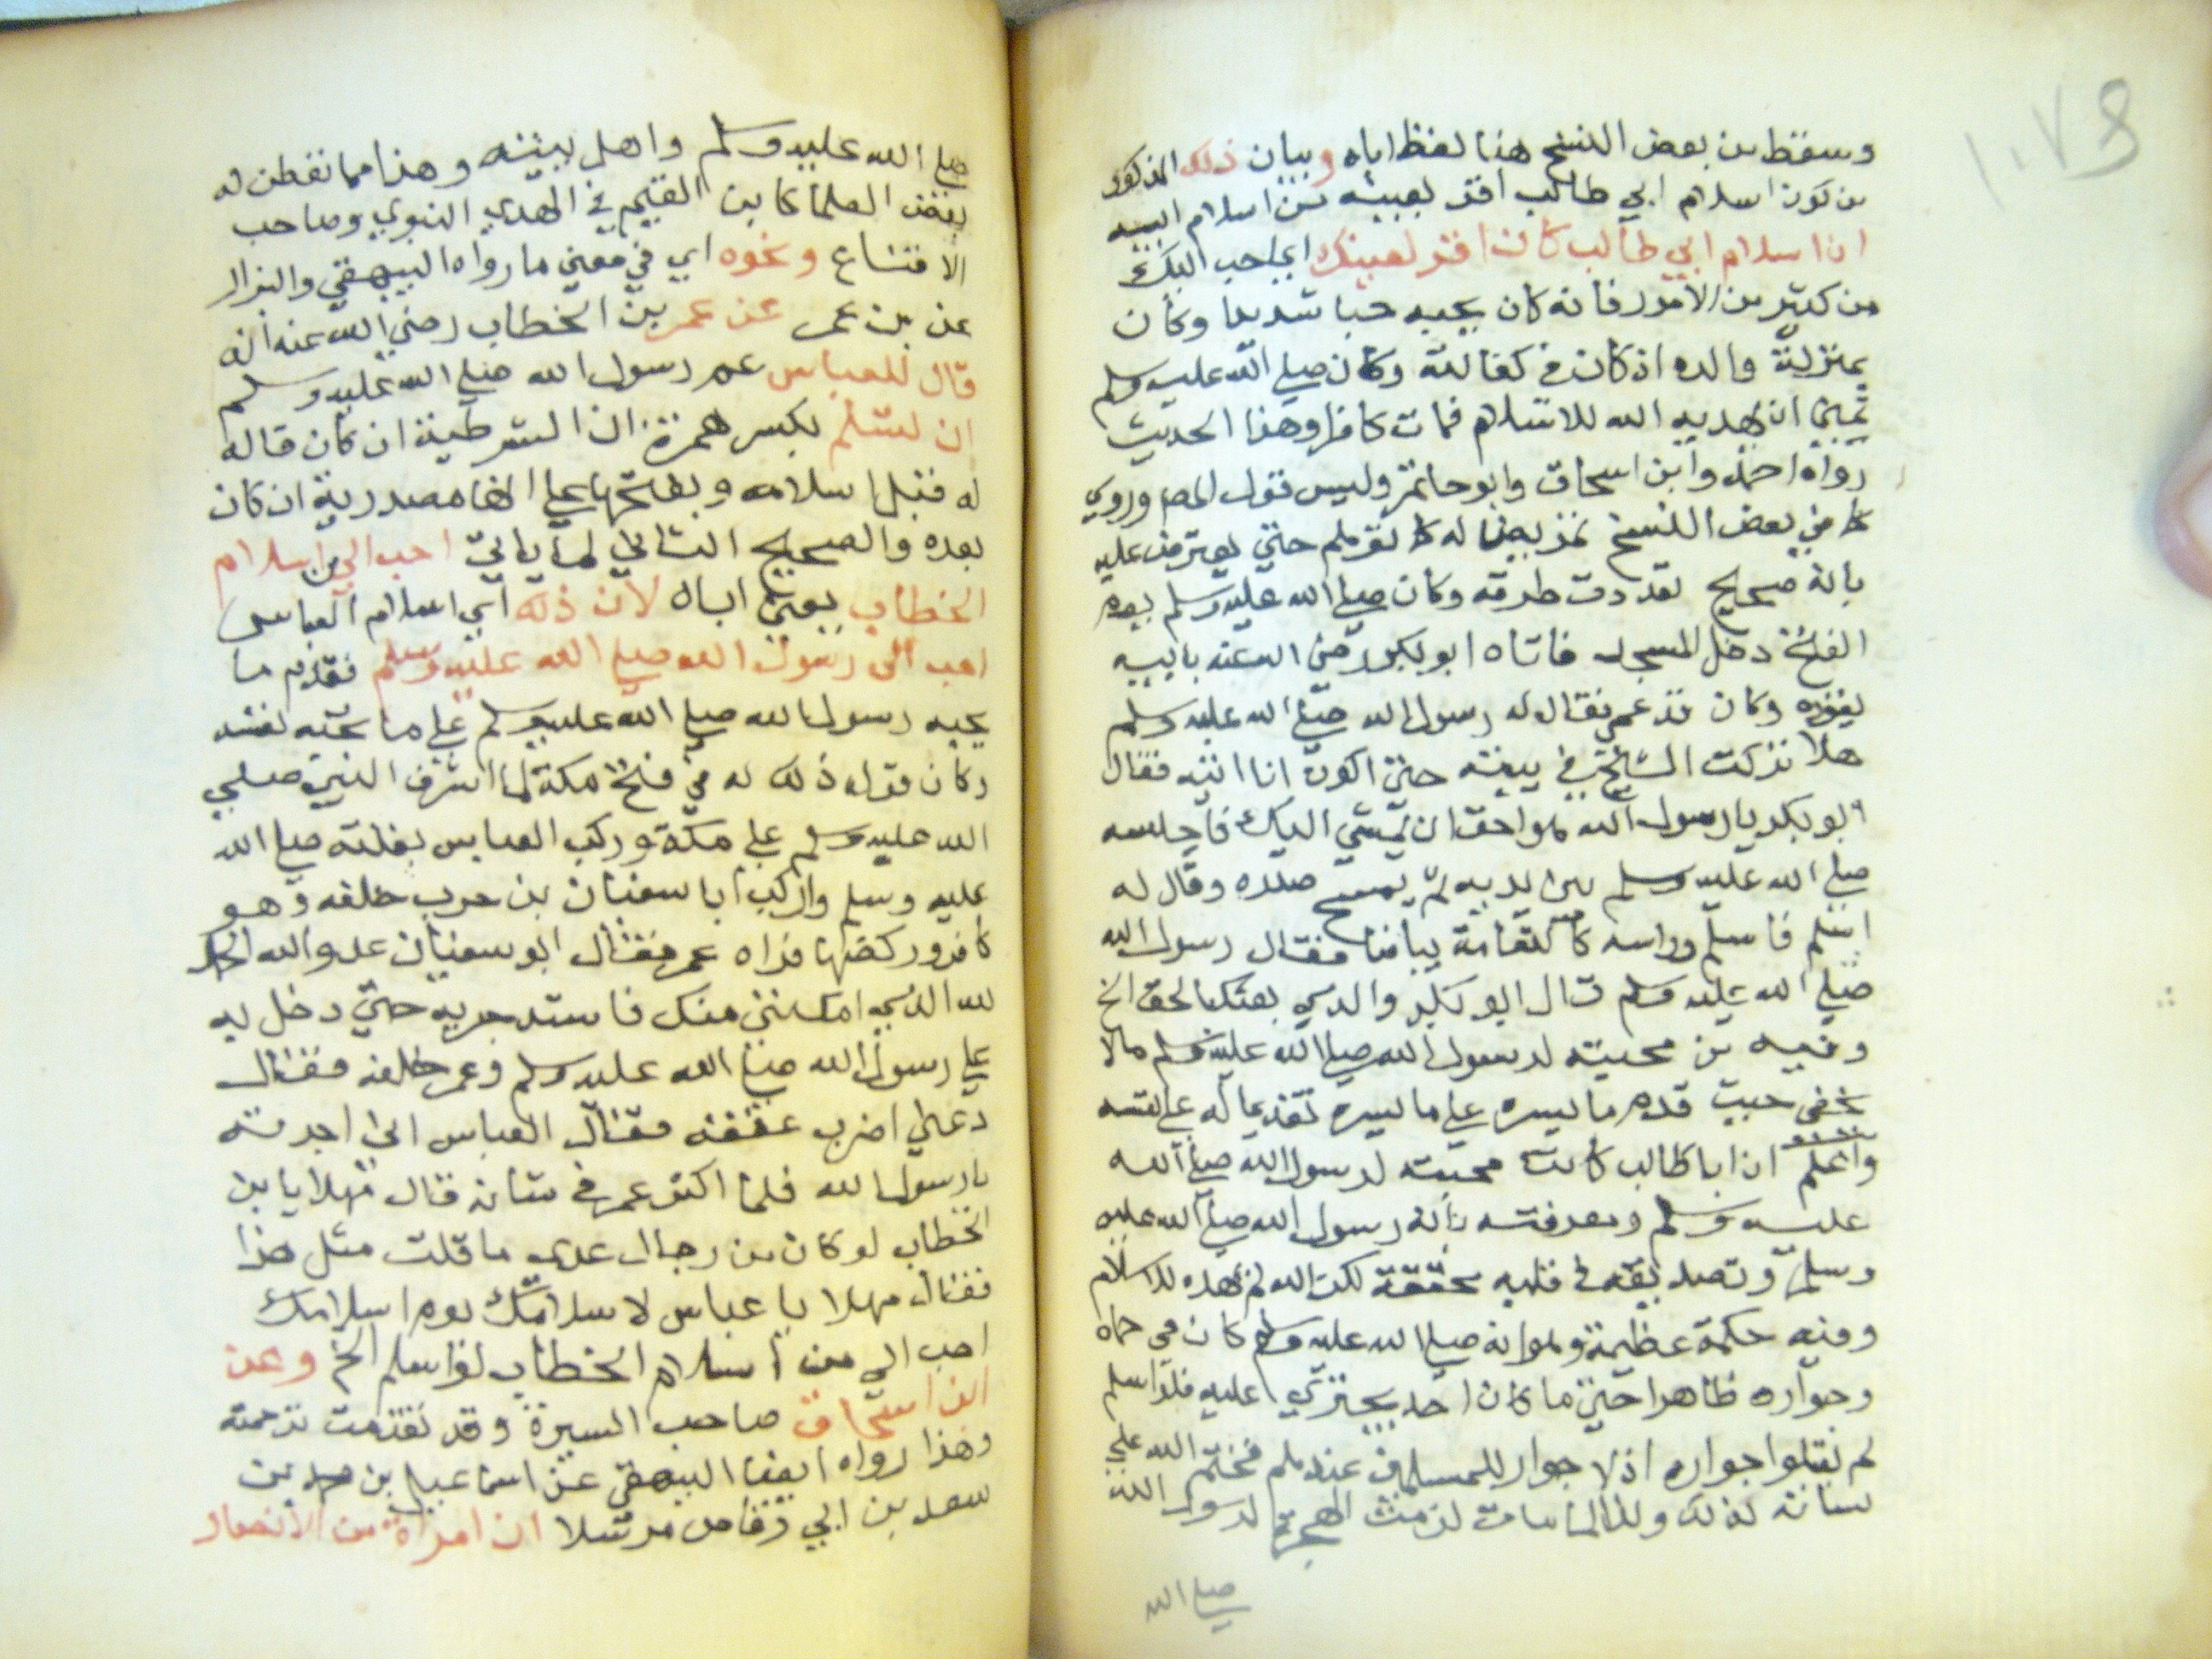 ١٠٧٤
وسقط من بعض النسخ هنا لفظ اباه وبيان ذلك المذكور
من كون اسلام ابي طالب اقر لعينه من اسلام ابيه
ان اسلام ابي طالب كان اقر لعينك اي احب اليك
من كثير من الامور فانه كان يحبه حبا شديدا وكان
بمنزلة والده اذ كان في كفالته وكان صلي الله عليه وسلم
تمني ان يهديه الله للاسلام فمات كافرا وهذا الحديث
رواه احمد وابن اسحاق وابوحاتم وليس قول المص وروي
كما في بعض النسخ تمريضا له كما توهم حتي يعترض عليه
بانه صحيح تعددت طرقه وكان صلي الله عليه وسلم يوم
الفتح دخل المسجد فاتاه ابو بكر رضي الله عنه بابيه
يقوده وكان قد عمي فقال له رسول الله صلي الله عليه وسلم
هلا تركت الشيخ في بيته حتي اكون انا اتيه فقال
ابو بكر يا رسول الله هو احق ان يمشي اليك فاجلسه
صلي الله عليه وسلم بين يديه ثم يمسح صدره وقال له
اسلم فاسلم وراسه كالثغامة بياضا فقال رسول الله
صلي الله عليه وسلم قال ابو بكر والذي بعثك بالحق الخ
وفيه من محبته لرسول الله صلي الله عليه وسلم مالا
يخفي حيث قدم ما يسره علي ما يسره تقديما له علي نفسه
واعلم ان ابا طالب كانت محبته لرسول الله صلي الله
عليه وسلم ومعرفته بانه رسول الله صلي الله عليه
وسلم وتصديقه في قلبه محققة لكن الله لم يهده للاسلام
وفيه حكمة عظيمة وهو انه صلي الله عليه وسلم كان في حماه
وجواره ظاهرا حتي ما كان احد يجتري عليه فلو اسلم
لم يقبلوا جواره اذ لا جوار للمسلمين عندهم فختم الله علي
لسانه لذلك ولذا لما مات لزمت الهجرة لرسول الله
صلي الله
صلي الله عليه وسلم واهل بيته وهذا مما تفطن له
بعض العلما كابن القيم في الهدي النبوي وصاحب
الامتناع ونحوه اي في معني ما رواه البيهقي والبزار
عن بن عمر عن عمر بن الخطاب رضي الله عنه انه
قال للعباس عم رسول الله صلي الله عليه وسلم
ان تسلم بكسر همزة ان الشرطية ان كان قاله
له قبل اسلامه وبفتحها علي انها مصدرية ان كان
بعده والصحيح الثاني لما ياتي احب الي من اسلام
الخطاب يعني اباه لان ذلك اي اسلام العباس
احب الى رسول الله صلي الله عليه وسلم فقدم ما
يحبه رسول الله صلي الله عليه وسلم علي ما تحبه نفسه
وكان قول ذلك له في فتح مكة لما اشرف النبي صلي
الله عليه وسلم علي مكة وركب العباس بغلته صلي الله
عليه وسلم واركب ابا سفيان بن حرب خلفه وهو
كافر وركضها فراه عمر فقال ابو سفيان عدو الله الحمد
لله الذي امكنني منك فاستد جريه حتي دخل به
علي رسول الله صلي الله عليه وسلم وعمر خلفه فقال
دعني اضرب عنقه فقال العباس اني اجرته
يا رسول الله فلما اكثر عمر في شانه قال مهلا يا بن
الخطاب لو كان من رجال عدي ما قلت مثل هذا
فقال مهلا يا عباس لاسلامك يوم اسلامك
احب الي من اسلام الخطاب لو اسلم الخ وعن
ابن اسحاق صاحب السيرة وقد تقدمت ترجمته
وهذا رواه ايضا البيهقي عن اسماعيل بن محمد بن
سعد بن ابي وقاص مرسلا ان امراة من الانصار